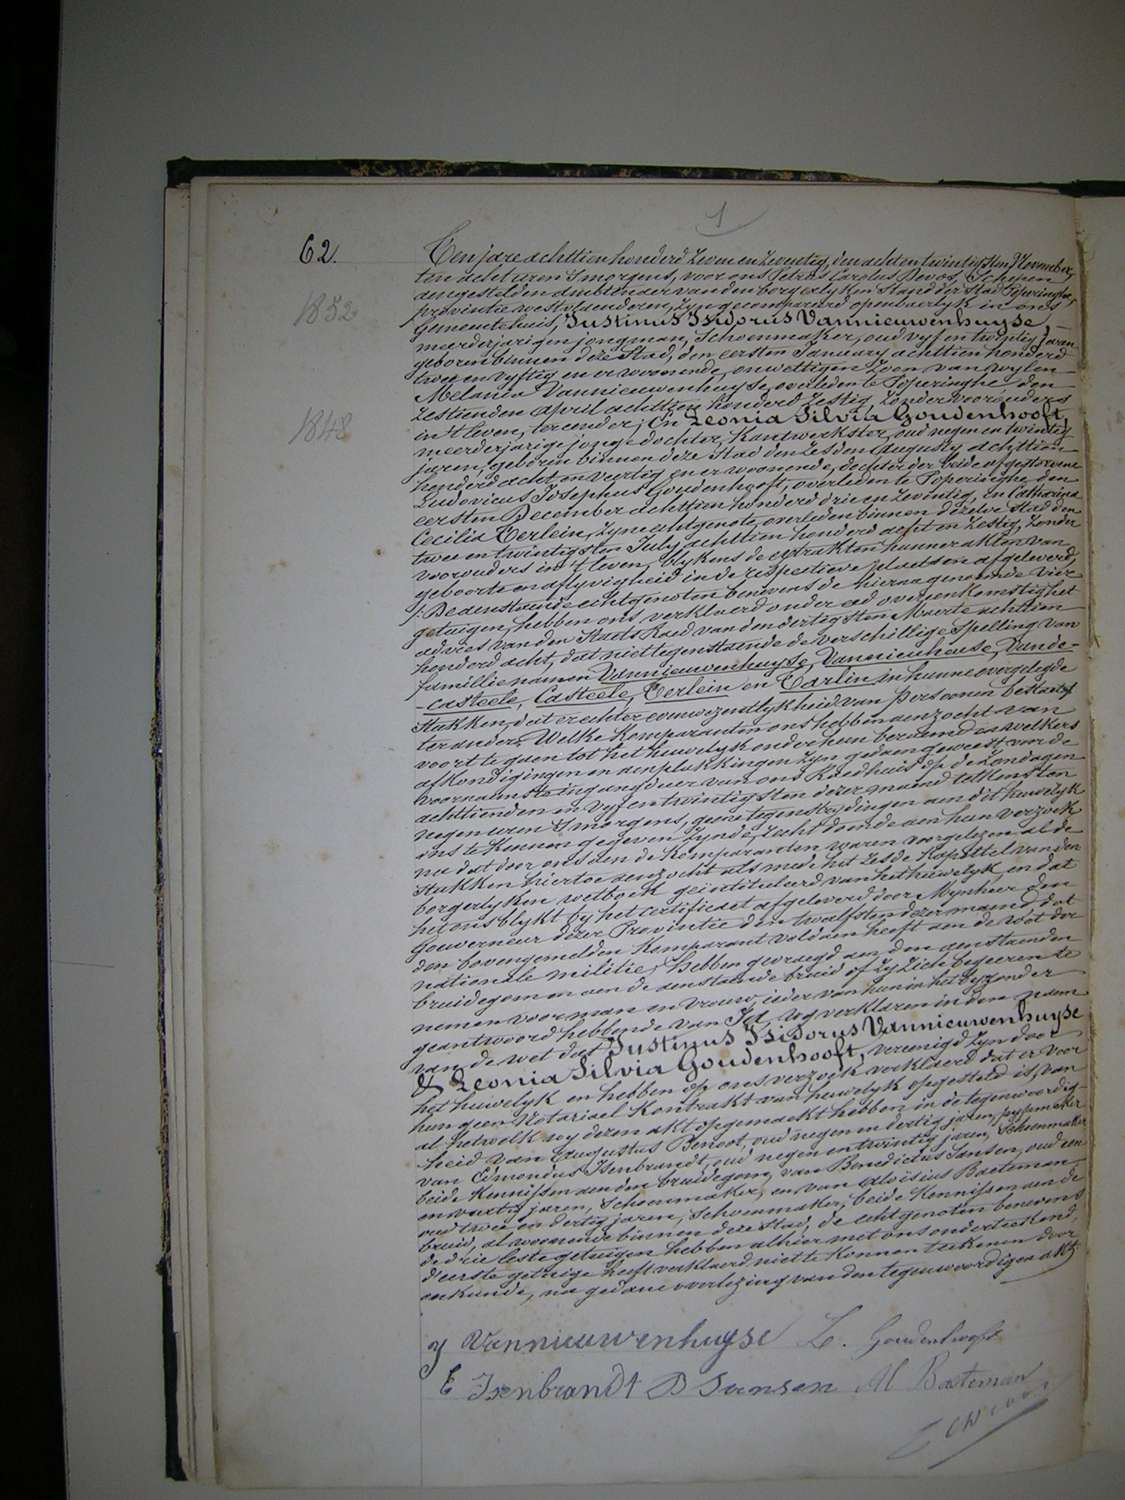 1
62.
Ten jare achttien honderd zeven en zeventig, den acht en twintigsten November,
ten acht uren 's morgens, voor ons Petrus Carolus Devos, Schepen
aengestelden ambtenaer van den borgerlyken Stand der Stad Poperinghe,
provintie westvlaenderen, zyn gecompareerd openbaerlyk in ons
1852
gemeentehuis, Justinus Isidorus Vannieuwenhuyse,
meerderjarigen jongman, Schoenmaker, oud vyf en twintig jaren
geboren binnen deze Stad, den eersten January achttien honderd
twee en vyftig en er woonende, onwettigen zoon van wylen
Melania Vannieuwenhuyse, overleden te Poperinghe den
zestienden April achttien honderd zestig, zonder voorouders
1848
in 't leven, ter eender; En Leonia Silvia Goudenhooft,
meerderjarige jonge dochter, Kantwerkster, oud negen en twintig
jaren, geboren binnen deze Stad den zesden Augusty achttien
honderd acht en veertig en er woonende, dochter der beide afgestorvene
Ludovicus Josephus Goudenhooft, overleden te Poperinghe den
eersten December achttien honderd drie en zeventig, en Catharina
Cecilia Terlein, zyne echtgenote, overleden binnen dezelve Stad den
twee en twintigsten July achttien honderd acht en zestig, zonder
voorouders in 't leven, blykens de extrakten hunner akten van
geboorte en aflyvigheid in de respectieve plaetsen afgeleverd,
/: De aenstaende echtgenoten benevens de hierna genoemde vier
getuigen, hebben ons verklaerd onder eed overeenkomstig het
advies van den Staets Raed van den dertigsten Maerte achttien
honderd acht, dat niettegenstaende de verschillige spelling van
famillienamen Vannieuwenhuyse, Vannieuhuse, Vande-
-casteele, Casteele, Terlein en Tarlin in hunne overgelegde
stukken, dat er echter eenwezentlykheid van persoonen bestaet /
ter ander; Welke Komparanten ons hebben aenzocht van
voort te gaen tot het huwelyk onder hun beraemd en welkers
afkondigingen en aenplakkingen zyn gedaen geweest voor de
voornaemste ingangdeur van ons Raedhuis op de zondagen
achttienden en vyf en twintigsten dezer maend telkens ten
negen uren 's morgens, geene tegenstrydingen aen dit huwelyk
ons te kennen gegeven zynde, recht doende aen hun verzoek
na dat door ons aen de Komparanten waren voorgelezen al de
stukken hiertoe aenzocht als mede het zesde Kapittel van den
borgerlyken wetboek geintituleerd van het huwelyk en dat
het ons blykt by het certificaet afgeleverd door Mynheer den
Gouverneur dezer Provintie den twaelfsten dezer maend dat
den bovengemelden Komparant voldaen heeft aen de wet der
nationale militie, Hebben gevraegd aen den aenstaenden
bruidegom en aen de aenstaende bruid of zy zich begeeren te
nemen voor man en vrouw, ieder van hun in het byzonder
geantwoord hebbende van Ja, wy verklaren in den naem
van de wet dat Justinus Isidorus Vannieuwenhuyse
& Leonia Silvia Goudenhooft, vereenigd zyn door
het huwelyk en hebben op ons verzoek verklaerd dat er voor
hun geen Notariael Kontrakt van huwelyk opgesteld is, van
al hetwelk wy dezen akt opgemaekt hebben in de tegenwoordig-
heid van Augustus Benoot, oud negen en dertig jaren, pypmaker
van Edmondus Isenbrandt, oud negen en twintig jaren, Schoenmaker
beide Kennissen aen den bruidegom, van Benedictus Jansen, oud een
en veertig jaren, Schoenmaker, en van Aloisius Baeteman
oud twee en dertig jaren, Schoenmaker, beide Kennissen aen de
bruid, al woonende binnen deze Stad, de echtgenoten benevens
de drie leste getuigen hebben alhier met ons onderteekend,
d'eerste getuige heeft verklaerd niet te Konnen teekenen door
onkunde, na gedane voorlezing van den tegenwoordigen akt
J Vannieuwenhuyse L. Goudenhooft
E Isenbrandt B Jansen Al Baeteman